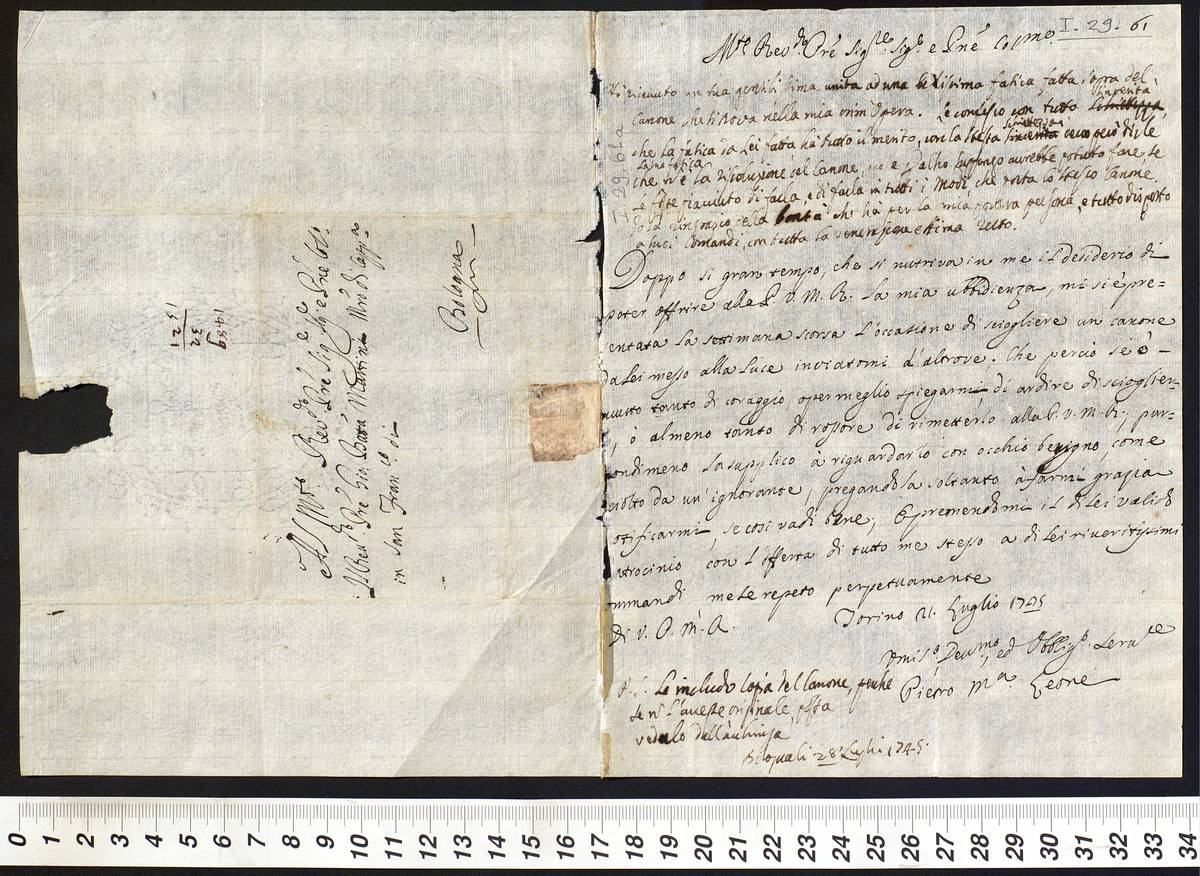 I. 29. 61
Mto Revdo Pre Sigre Sigr e Pne Colmo
ricevuto un sua gentilissima unita ad una bellissima fatica fatta sopra del
Canone che si trova nella mia prima Opera. Le confesso con tutto
che la fatica da Lei fatta ha tutto il merito, con la stessa però dirle
che la Risoluzione del Canone, e altro
riceuuto di farla, e di farla in tutti i Modi che porta lo stesso Canone.
della bontà che hà per la mia povera persona, e tutto disposto
a suoi Comandi, con tutta la venerazione e stima resto.
I 29. 61a
Doppo si gran tempo, che si nutriva in me il desiderio di
poter offrire alla P. V. M. R. la mia ubbidienza, mi si è pre=
entata la settimana scorsa l'occasione di sciogliere un canone
da Lei messo alla luce inviatomi d'altrove; Che perciò se è
tanto di coraggio, o per meglio spiegarmi, di ardire di scioglier=
, ò almeno tanto di rossore di rimetterlo alla P. V. M. R., pur=
ondimeno la supplico à riguardarlo con occhio benigno, come
ciolto da un' ignorante, pregandola soltanto à farmi grazia
otificarmi, se così vadi bene; E premendomi il di Lei valido
atrocinio con l'offerta di tutto me stesso a di Lei riveritissimi
ommandi me le repeto perpetuamente
Di V. P. M. R. Torino 21. Luglio 1745
Umiso, Devmo, ed Obbligo Servre
Pietro Ma Leone
P. S. Le includo Copia del Canone, perche
se n L'avesse originale, possa
vedulo dall'achiusa
28 Luglio 1745.
Al Mto Revdo Pre Sig Sig e Pne Colo
Il Pre Gio Batta Martini Mro di Cappa
in San Franco di
Bologna
1489
32
1
521